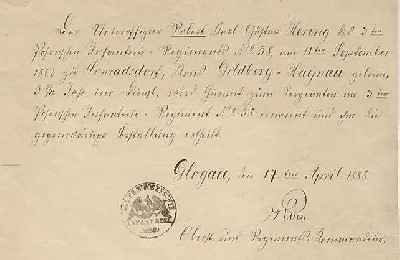 Der Unteroffizier Robert Karl Gustav Hering des 3ten
Posenschen Infanterie-Regiments No 58, am 11ten September
1862 zu Conradsdorf, Kreis Goldberg-Haynau geboren,
Jahr der Dienst, wird hiermit zum Sergeanten im 3ten
Posenschen Infanterie-Regiment No 58 ernannt und ihm die
gegenwärtige Bestallung ertheilt.
Glogau, den 17ten April 1888.
Oberst und Regiments-Kommandeur.